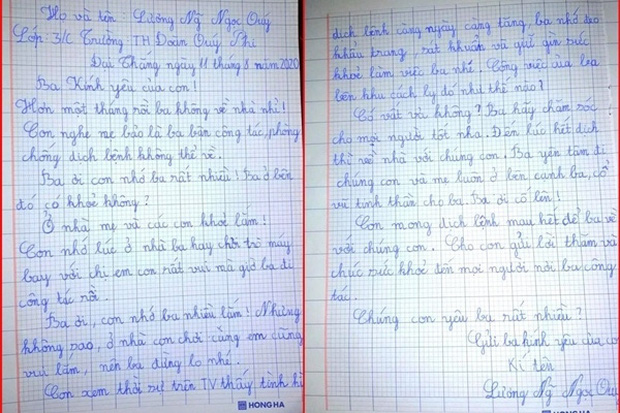 Họ và tên Lương Ng̃ Ngọc Quý
Lớp: 3/C Trường: TH Đoàn Quý Phi
Đại Thắng ngày 11 tháng 8 năm 2020
Ba Kính yêu của con!
Hơn một tháng rồi ba không về nhà nhỉ!
Con nghe mẹ bảo là ba bận công tác, phòng
chống dịch bệnh không thể về.
Ba ơi con nhớ ba rất nhiều! Ba ở bên
đó có khoẻ không?
Ở nhà mẹ và các con khoẻ lắm!
Con nhớ lúc ở nhà ba hay chơi trò máy
bay với chị em con rất vui mà giờ ba đi
công tác rồi.
Ba ơi, con nhớ ba nhiều lắm! Nhưng
không sao, ở nhà con chơi cùng em cũng
vui lắm, nên ba đừng lo nhé.
Con xem thời sự trên TV thấy tình hì
HONG HA
dịch bệnh càng ngày càng tăng, ba nhớ đeo
khẩu trang, sát khuẩn và giữ gìn sức
khoẻ làm việc ba nhé. Công việc của ba
bên khu cách ly đó như thế nào?
Có vất vả không? Ba hãy chăm sóc
cho mọi người tốt nha. Đến lúc hết dịch
thì về nhà với chúng con. Ba yên tâm đi
chúng con và mẹ luôn ở bên cạnh ba, cổ
vũ tinh thần cho ba. Ba ơi cố lên!
Con mong dịch bệnh mau hết để ba về
với chúng con. Cho con gửi lời thăm và
chúc sức khoẻ đến mọi người nơi ba công
tác.
Chúng con yêu ba rất nhiều?
Gửi ba kính yêu của con
Kí tên
Lương Ng̃ Ngọc Quý
HONG HA